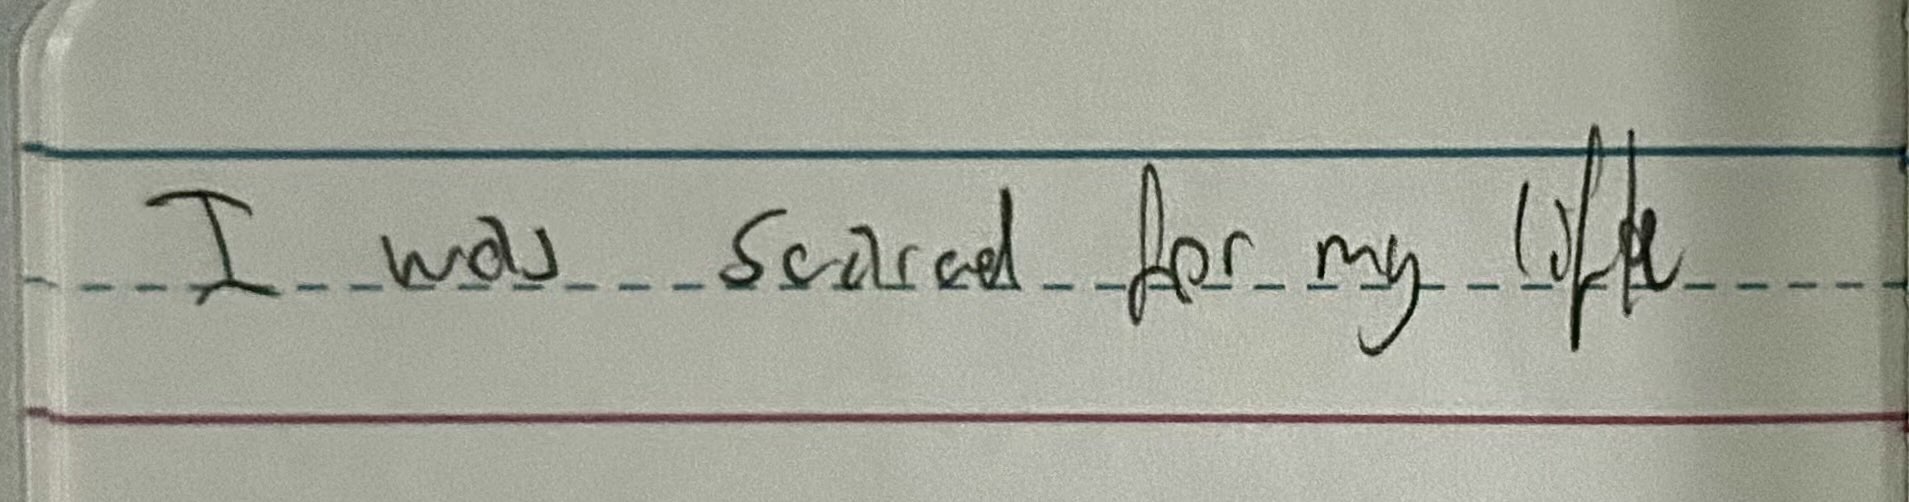 I was scared for my life